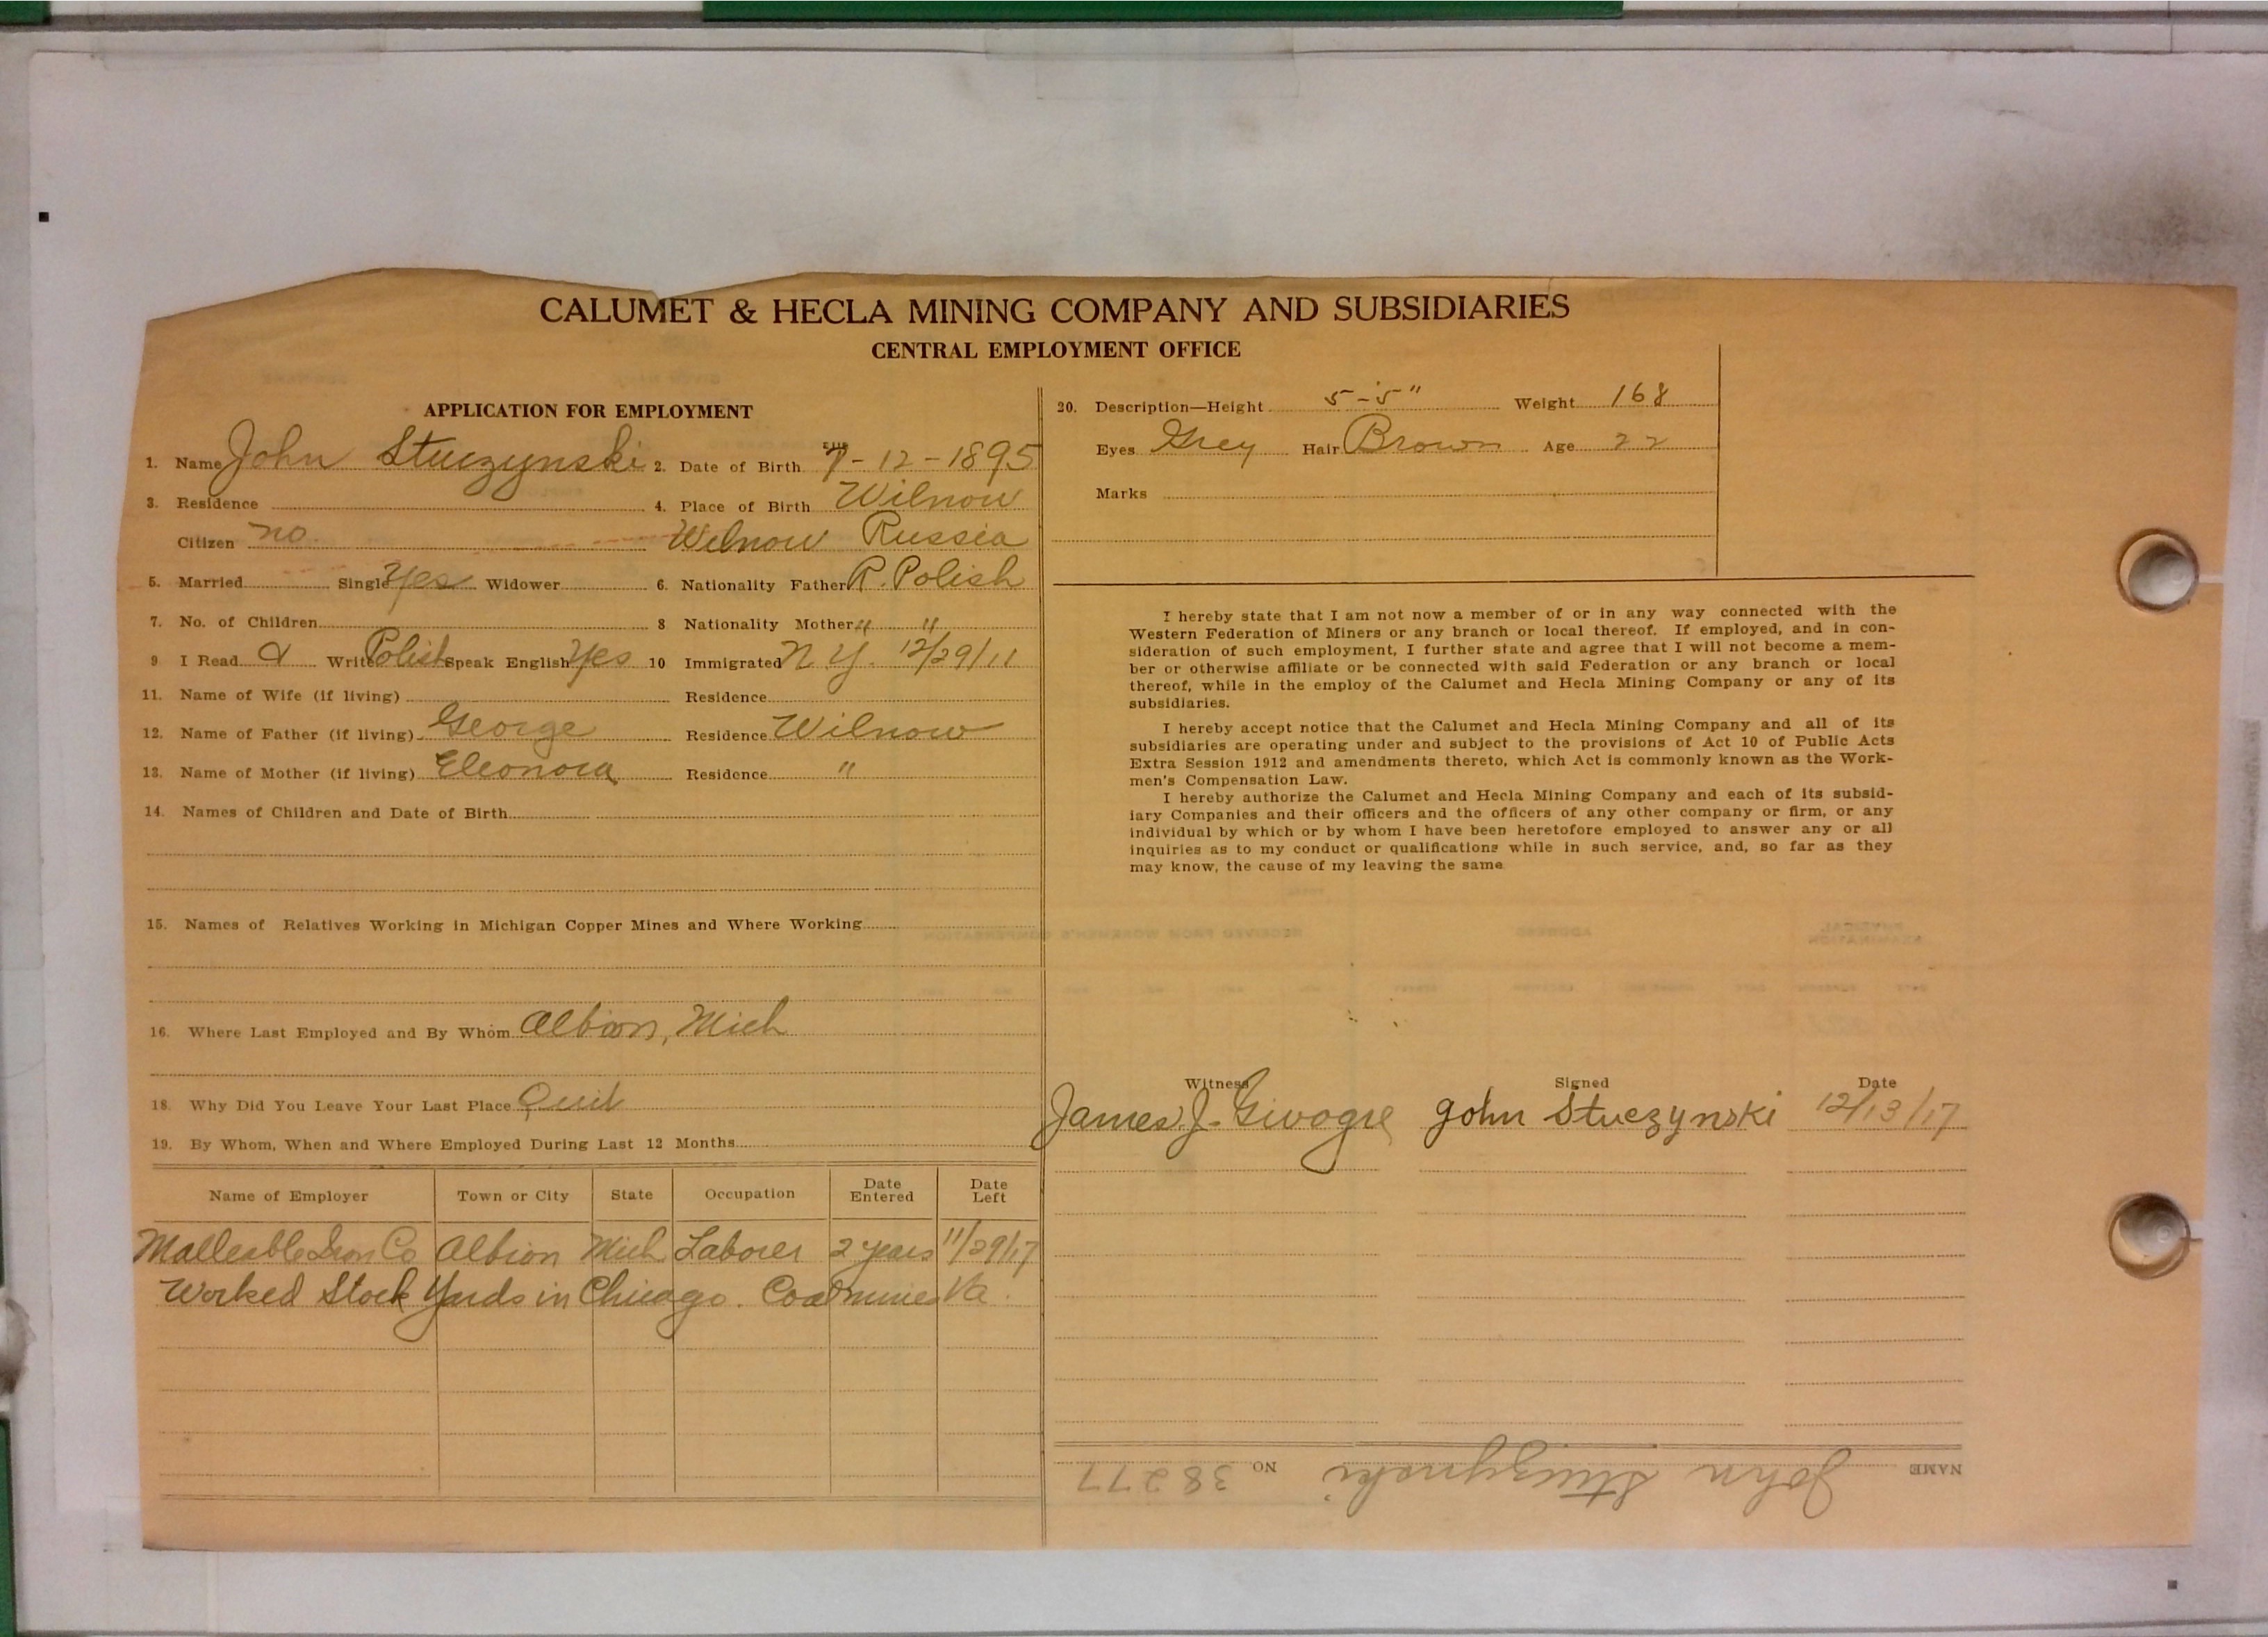 CALUMET & HECLA MINING COMPANY AND SUBSIDIARIES
CENTRAL EMPLOYMENT OFFICE
APPLICATION FOR EMPLOYMENT
1. Name John Stuczynski 2. Date of Birth 7-12-1895
3. Residence 4. Place of Birth Wilnow
Citizen no. Wilnow Russia
5. Married Single Yes Widower 6. Nationality Father R. Polish
7. No. of Children 8 Nationality Mother " "
9 I Read & Write Polish Speak English Yes 10 Immigrated N. Y. 12/29/11
11. Name of Wife (if living) Residence
12. Name of Father (if living) George Residence Wilnow
13. Name of Mother (if living) Eleonora Residence "
14. Names of Children and Date of Birth
15. Names of Relatives Working in Michigan Copper Mines and Where Working
16. Where Last Employed and By Whom Albion, Mich
18. Why Did You Leave Your Last Place Quit
19. By Whom, When and Where Employed During Last 12 Months
Name of Employer Town or City State Occupation Date Entered Date Left
Malleable Iron Co Albion Mich Laborer 2 years 11/29/17
Worked Stock Yards in Chicago. Coal mines Va.
20. Description—Height 5-5" Weight 168
Eyes Grey Hair Brown Age 22
Marks
I hereby state that I am not now a member of or in any way connected with the
Western Federation of Miners or any branch or local thereof. If employed, and in con-
sideration of such employment, I further state and agree that I will not become a mem-
ber or otherwise affiliate or be connected with said Federation or any branch or local
thereof, while in the employ of the Calumet and Hecla Mining Company or any of its
subsidiaries.
I hereby accept notice that the Calumet and Hecla Mining Company and all of its
subsidiaries are operating under and subject to the provisions of Act 10 of Public Acts
Extra Session 1912 and amendments thereto, which Act is commonly known as the Work-
men's Compensation Law.
I hereby authorize the Calumet and Hecla Mining Company and each of its subsid-
iary Companies and their officers and the officers of any other company or firm, or any
individual by which or by whom I have been heretofore employed to answer any or all
inquiries as to my conduct or qualifications while in such service, and, so far as they
may know, the cause of my leaving the same
Witness Signed Date
James J. John Stuczynski 12/13/17
NAME John Stuczynski NO 38277